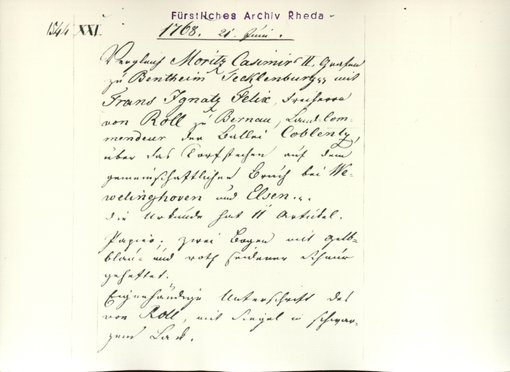 Fürstliches Archiv Rheda
1544 XXI. 1768. 21. Juni.
Vergleich Moritz Casimir's II. Grafen
zu Bentheim Tecklenburg pp mit
Frans Ignatz Felix, Freiherrn
von Roll zu Bernau, Land-Com-
mendeur der Ballei Coblentz,
über das Torfstechen auf dem
gemeinschaftlichen Bruch bei We-
velinghoven und Elsen.
Die Urkunde hat 11 Artikel.
Papier; zwei Bogen mit gelb-
blau- und roth seidener Schnur
geheftet.
Eigenhändige Unterschrift des
von Roll, mit Siegel in schwar-
zem Lack.